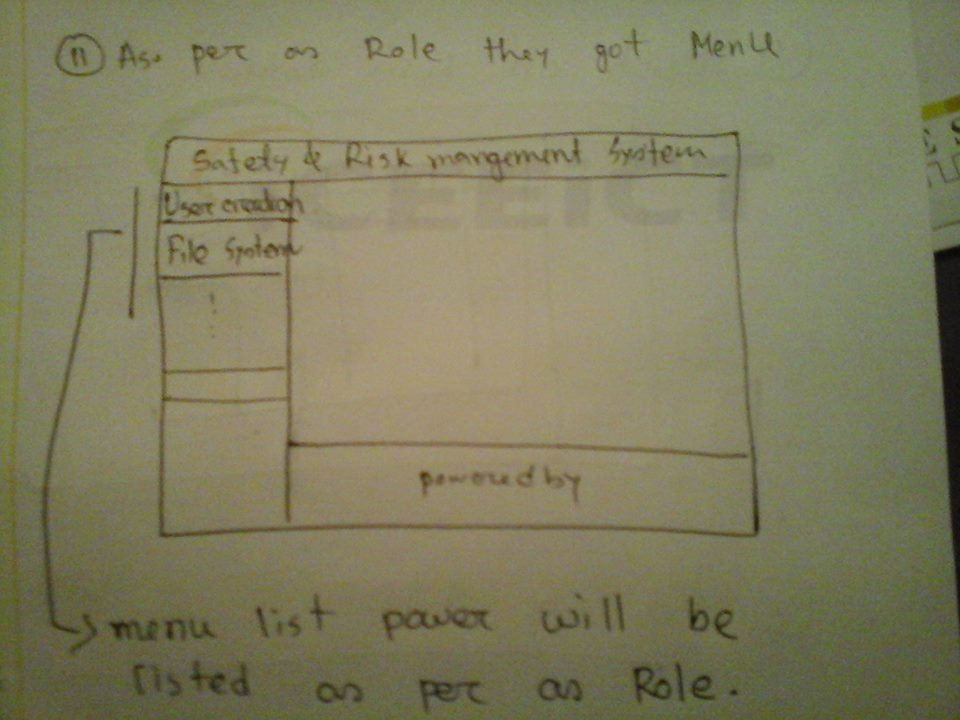 11 As per as Role they got Menu
Safety & Risk mangement System
User creation
File System
powered by
menu list power will be
listed as per as Role.
CEEICT